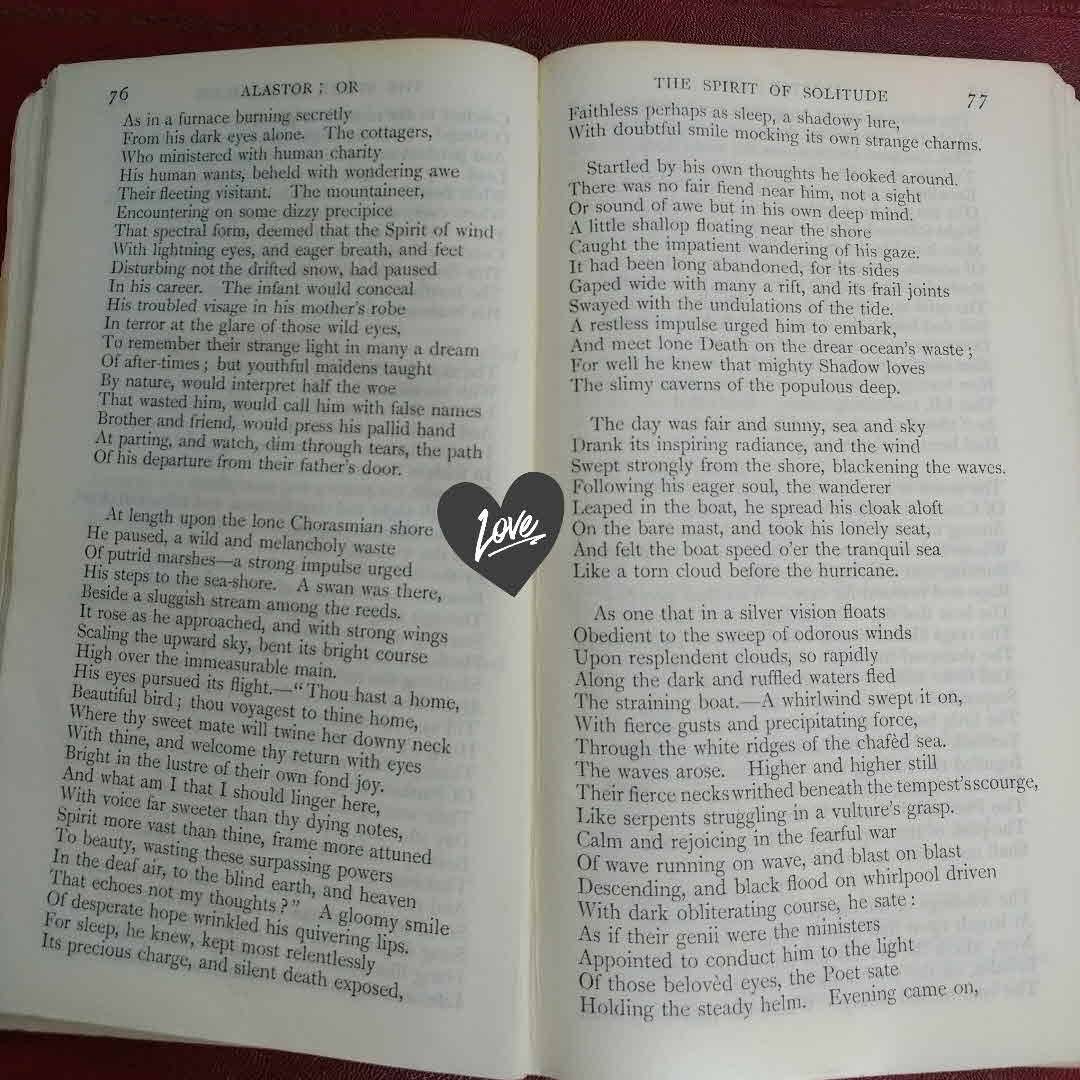 76
ALASTOR; OR
As in a furnace burning secretly
From his dark eyes alone. The cottagers,
Who ministered with human charity
His human wants, beheld with wondering awe
Their fleeting visitant. The mountaineer,
Encountering on some dizzy precipice
That spectral form, deemed that the Spirit of wind
With lightning eyes, and eager breath, and feet
Disturbing not the drifted snow, had paused
In his career. The infant would conceal
His troubled visage in his mother's robe
In terror at the glare of those wild eyes,
To remember their strange light in many a dream
Of after-times; but youthful maidens taught
By nature, would interpret half the woe
That wasted him, would call him with false names
Brother and friend, would press his pallid hand
At parting, and watch, dim through tears, the path
Of his departure from their father's door.
At length upon the lone Chorasmian shore
He paused, a wild and melancholy waste
Of putrid marshes—a strong impulse urged
His steps to the sea-shore. A swan was there,
Beside a sluggish stream among the reeds.
It rose as he approached, and with strong wings
Scaling the upward sky, bent its bright course
High over the immeasurable main.
His eyes pursued its flight.—"Thou hast a home,
Beautiful bird; thou voyagest to thine home,
Where thy sweet mate will twine her downy neck
With thine, and welcome thy return with eyes
Bright in the lustre of their own fond joy.
And what am I that I should linger here,
With voice far sweeter than thy dying notes,
Spirit more vast than thine, frame more attuned
To beauty, wasting these surpassing powers
In the deaf air, to the blind earth, and heaven
That echoes not my thoughts?" A gloomy smile
Of desperate hope wrinkled his quivering lips.
For sleep, he knew, kept most relentlessly
Its precious charge, and silent death exposed,
Love
THE SPIRIT OF SOLITUDE
77
Faithless perhaps as sleep, a shadowy lure,
With doubtful smile mocking its own strange charms.
Startled by his own thoughts he looked around.
There was no fair fiend near him, not a sight
Or sound of awe but in his own deep mind.
A little shallop floating near the shore
Caught the impatient wandering of his gaze.
It had been long abandoned, for its sides
Gaped wide with many a rift, and its frail joints
Swayed with the undulations of the tide.
A restless impulse urged him to embark,
And meet lone Death on the drear ocean's waste;
For well he knew that mighty Shadow loves
The slimy caverns of the populous deep.
The day was fair and sunny, sea and sky
Drank its inspiring radiance, and the wind
Swept strongly from the shore, blackening the waves.
Following his eager soul, the wanderer
Leaped in the boat, he spread his cloak aloft
On the bare mast, and took his lonely seat,
And felt the boat speed o'er the tranquil sea
Like a torn cloud before the hurricane.
As one that in a silver vision floats
Obedient to the sweep of odorous winds
Upon resplendent clouds, so rapidly
Along the dark and ruffled waters fled
The straining boat.—A whirlwind swept it on,
With fierce gusts and precipitating force,
Through the white ridges of the chafèd sea.
The waves arose. Higher and higher still
Their fierce necks writhed beneath the tempest's scourge,
Like serpents struggling in a vulture's grasp.
Calm and rejoicing in the fearful war
Of wave running on wave, and blast on blast
Descending, and black flood on whirlpool driven
With dark obliterating course, he sate:
As if their genii were the ministers
Appointed to conduct him to the light
Of those belovèd eyes, the Poet sate
Holding the steady helm. Evening came on,